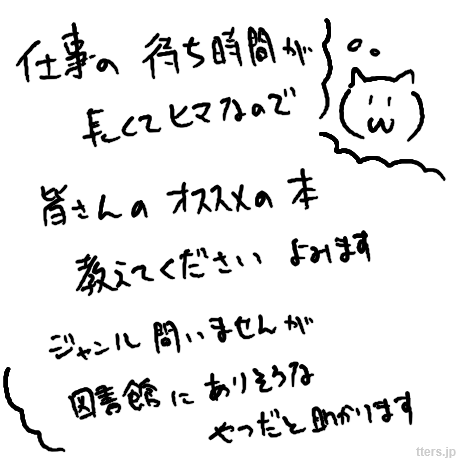 仕事の 待ち時間が
長くてヒマなので
皆さんの オススメの 本
教えてください よみます
ジャンル 問いませんが
図書館に ありそうな
やつだと 助かります
tters.jp